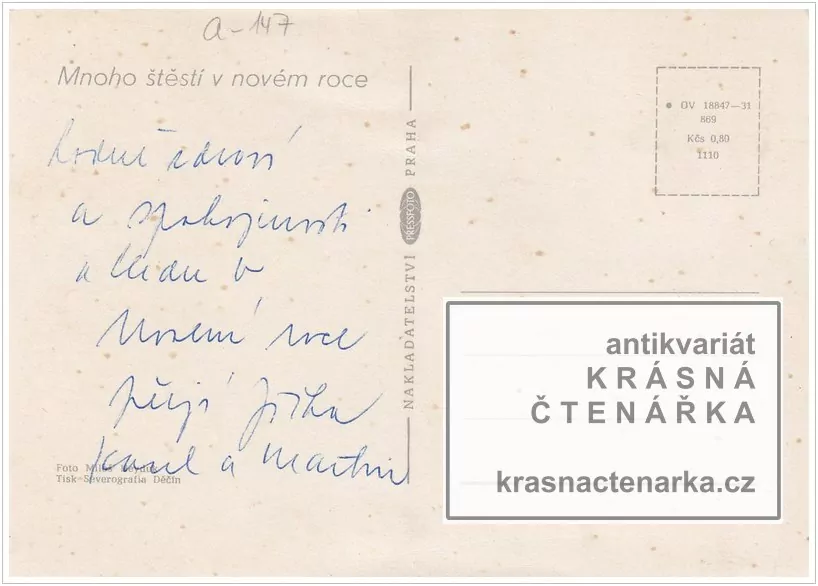 a-147
Mnoho štěstí v novém roce
hodně zdraví
a spokojenosti
a klidu v
Novém roce
přejí Jitka
Karel a Martin
Foto Miloš
Tisk Severografia Děčín
NAKLADATELSTVÍ PRESSFOTO PRAHA
OV 18847—31
869
Kčs 0,80
1110
antikvariát
KRÁSNÁ
ČTENÁŘKA
krasnactenarka.cz